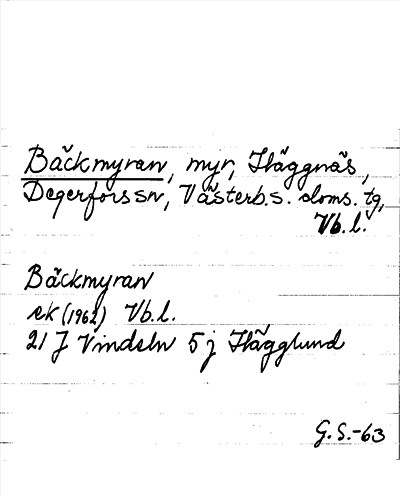 Bäckmyran, myr, Häggnäs,
Degerfors sn, Västerb.s. doms. tg,
Vb.l.
Bäckmyran
ek (1962) Vb.l.
21 J Vindeln 5 j Hägglund
G.S.-63